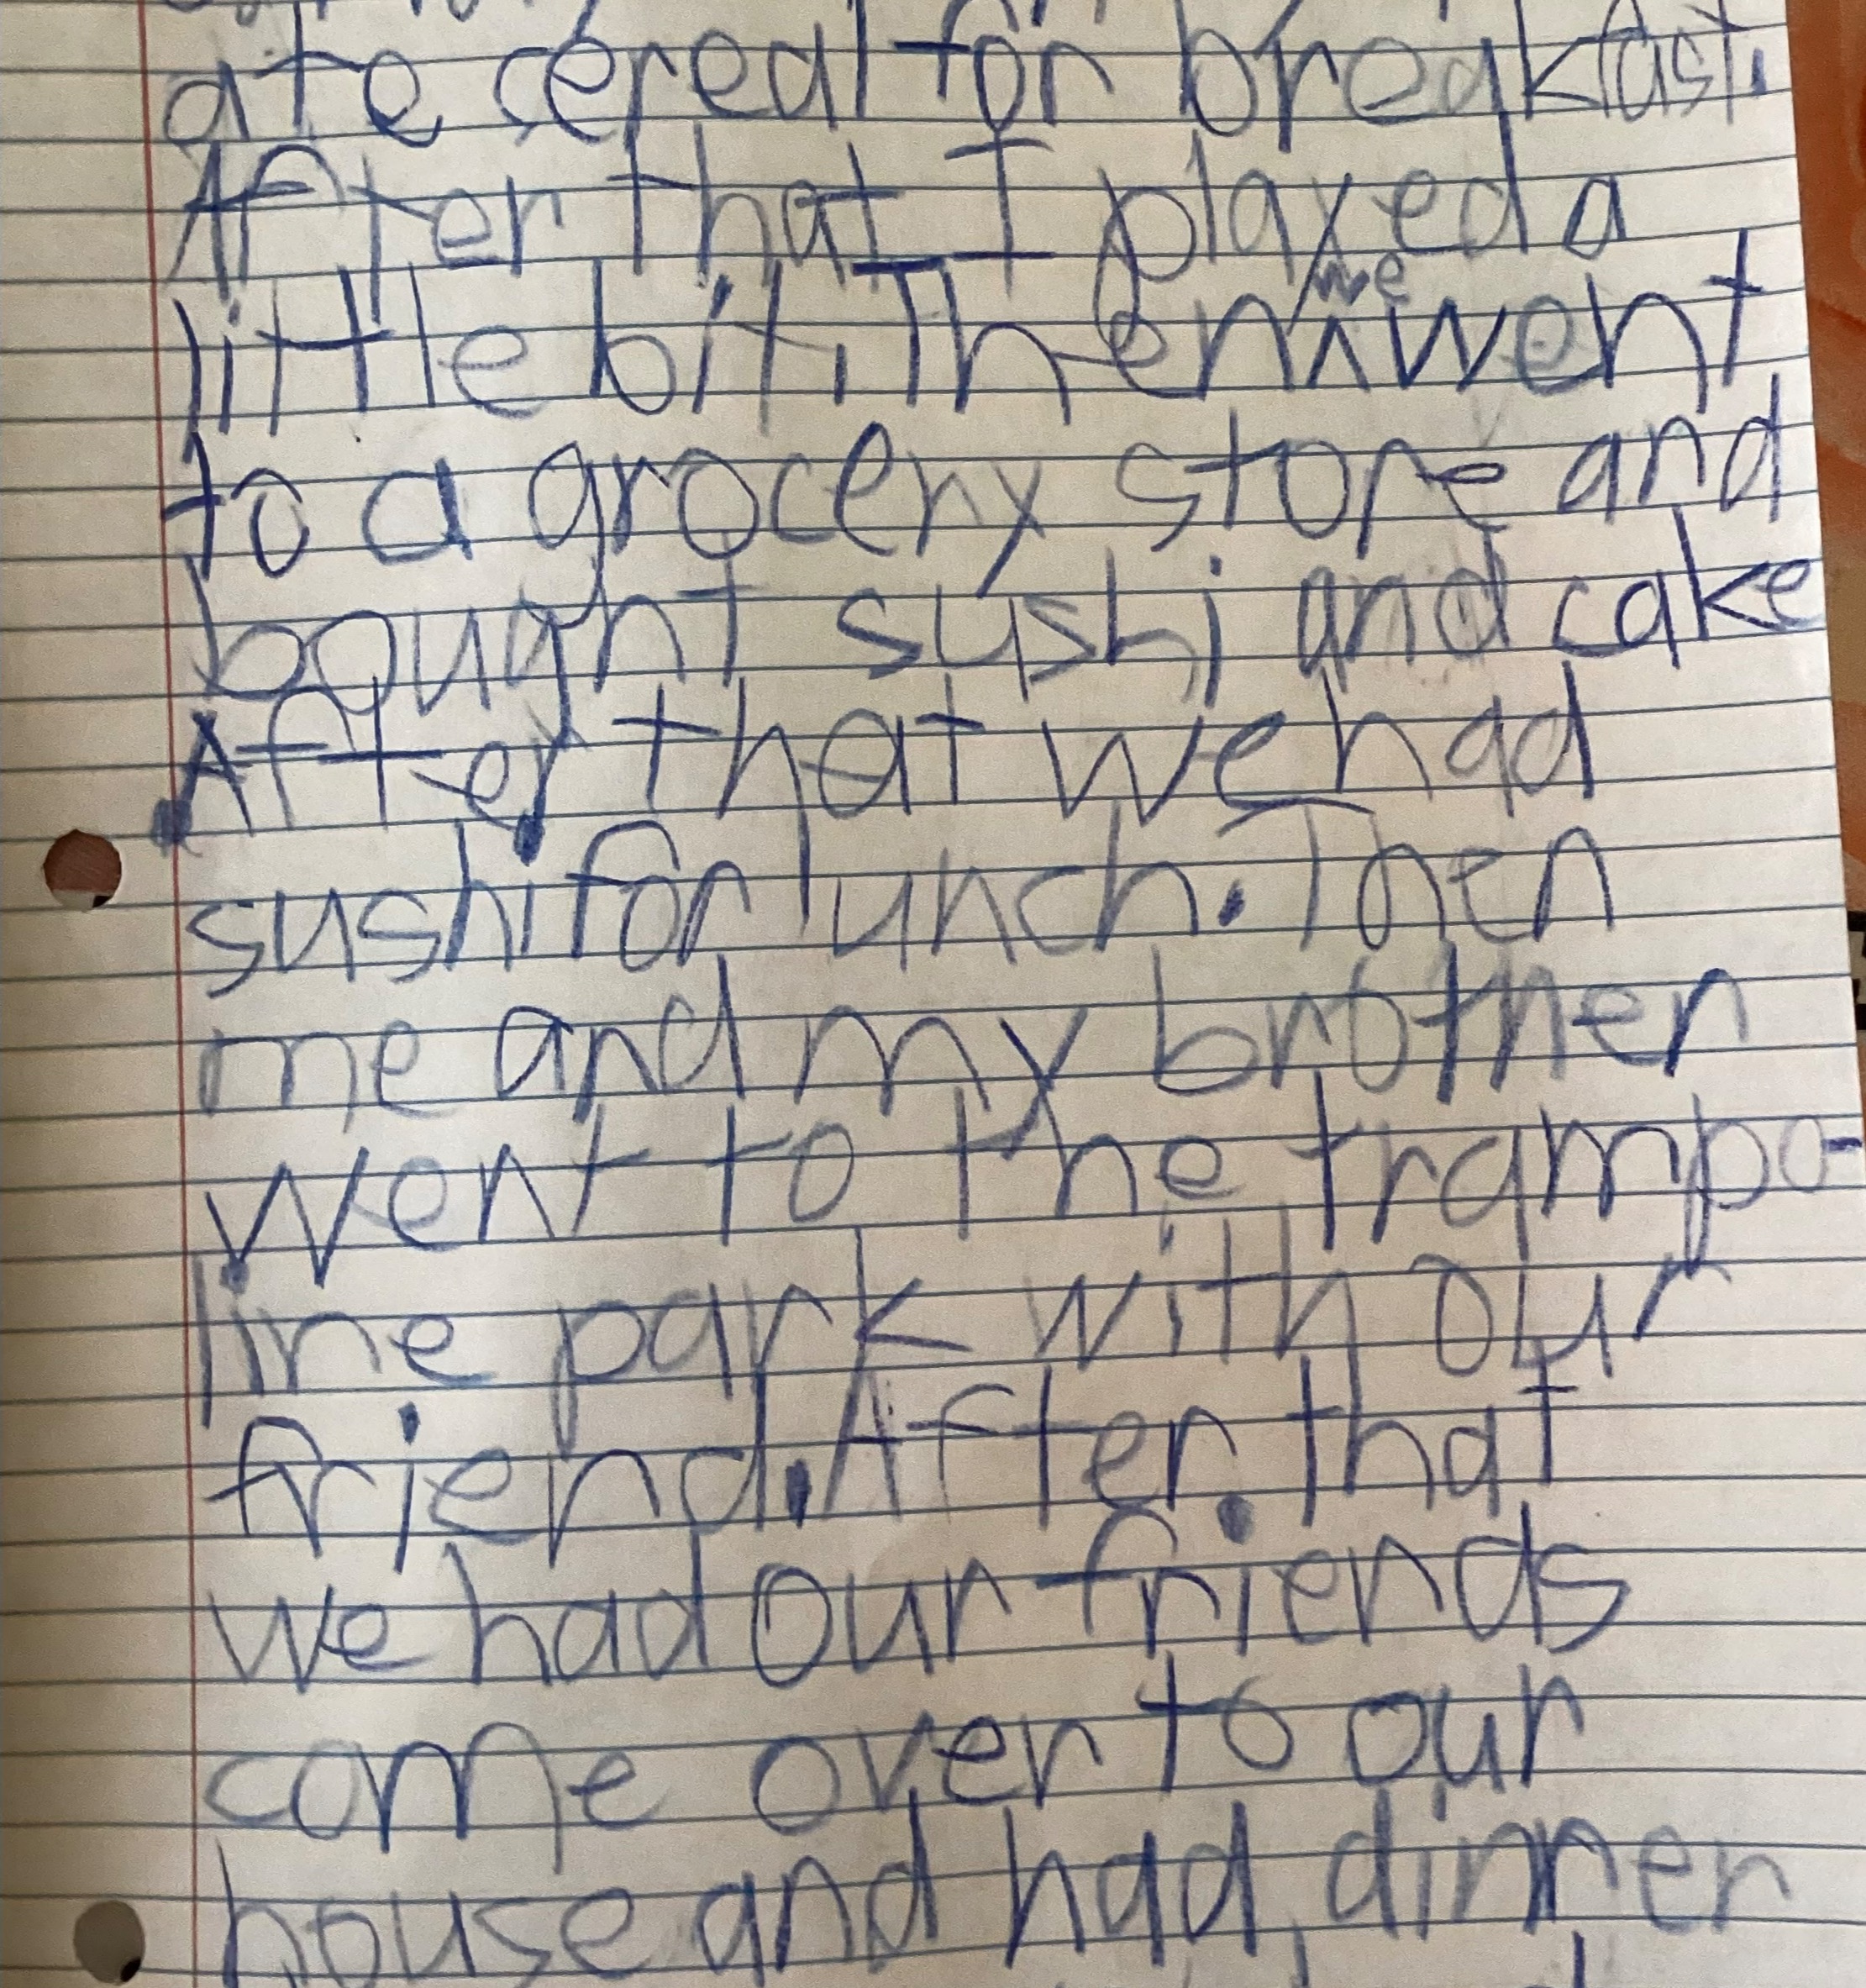 ate cereal for breakfast.
After that I played a
little bit. Then we went
to a grocery store and
bought sushi and cake
. After that we had
sushi for lunch. Then
me and my brother
went to the trampo-
line park with our
friend. After that
we had our friends
come over to our
house and had dinner